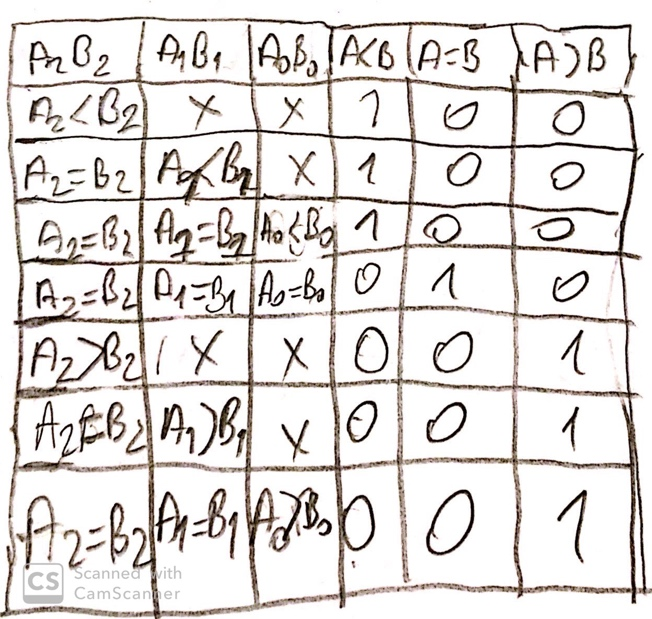 A₂B₂ A₁B₁ A₀B₀ A<B A=B A>B
A₂<B₂ X X 1 0 0
A₂=B₂ A₁<B₁ X 1 0 0
A₂=B₂ A₁=B₁ A₀<B₀ 1 0 0
A₂=B₂ A₁=B₁ A₀=B₀ 0 1 0
A₂>B₂ X X 0 0 1
A₂=B₂ A₁>B₁ X 0 0 1
A₂=B₂ A₁=B₁ A₀>B₀ 0 0 1
CS Scanned with
CamScanner